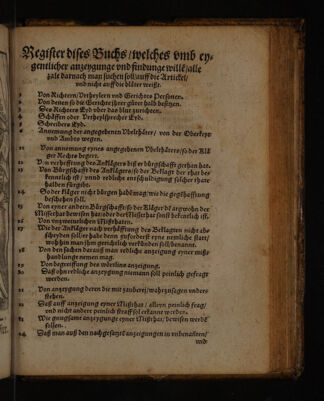 Register dises Buchs / welches vmb ey-
gentlicher anzeygunge vnd findunge wille / alle
zale darnach man suchen soll / auff die Artickel /
vnd nicht auff die bletter weißt.
1 Von Richtern / Vrtheylern vnd Gerichts Personen.
2 Von denen so die Gerichte jhrer güter halb besitzen.
3 Des Richters Eyd vber das blut zurichten.
4 Schöffen oder Vrtheylsprecher Eyd.
5 Schreibers Eyd.
6 Annemung der angegebenen Vbelthäter / von der Oberkeyt
vnd Ampts wegen.
11 Von annemung eynes angegebenen Vbelthäters / so der Klä-
ger Rechts begert.
12 Vō verhefftung des Anklägers biß er bürgschafft gethan hat.
13 Von Bürgschafft des Anklägers / so der Beklagt der that be-
kentlich ist / vnnd redliche entschüldigung solcher that
halben fürgibt.
14 So der Kläger nicht bürgen habē mag / wie die gegēhafftung
beschehen soll.
15 Von eyner andern Bürgschafft / so der Kläger argwohn der
Missethat bewisen hat / oder die Missethat sonst bekentlich ist.
16 Von vngezweiuelten Mißthaten.
17 Wie der Ankläger nach verhafftung des Beklagten nicht ab-
scheyden soll / er habe dann zuforderst eyne nemliche statt /
wohin man jhm gerichtlich verkünden soll / benannt.
18 Von den sachen darauß man redliche anzeigung eyner miß-
handlunge nemen mag.
19 Von begreiffung des wörtlins anzeigung.
20 Daß ohn redliche anzeygung niemann soll peinlich gefragt
werden.
21 Von anzeygung deren die mit zauberej / wahrzusagen vnder-
stehen.
22 Daß auff anzeigung eyner Mißthat / alleyn peinlich frag /
vnd nicht andere peinlich straff sol erkannt werden.
23 Wie gnugsame anzeygunge eyner Mißthat / bewisen werdē
sollen.
24 Daß man auß den nachgesetzte anzeigungen in vnbenañten /
vnd